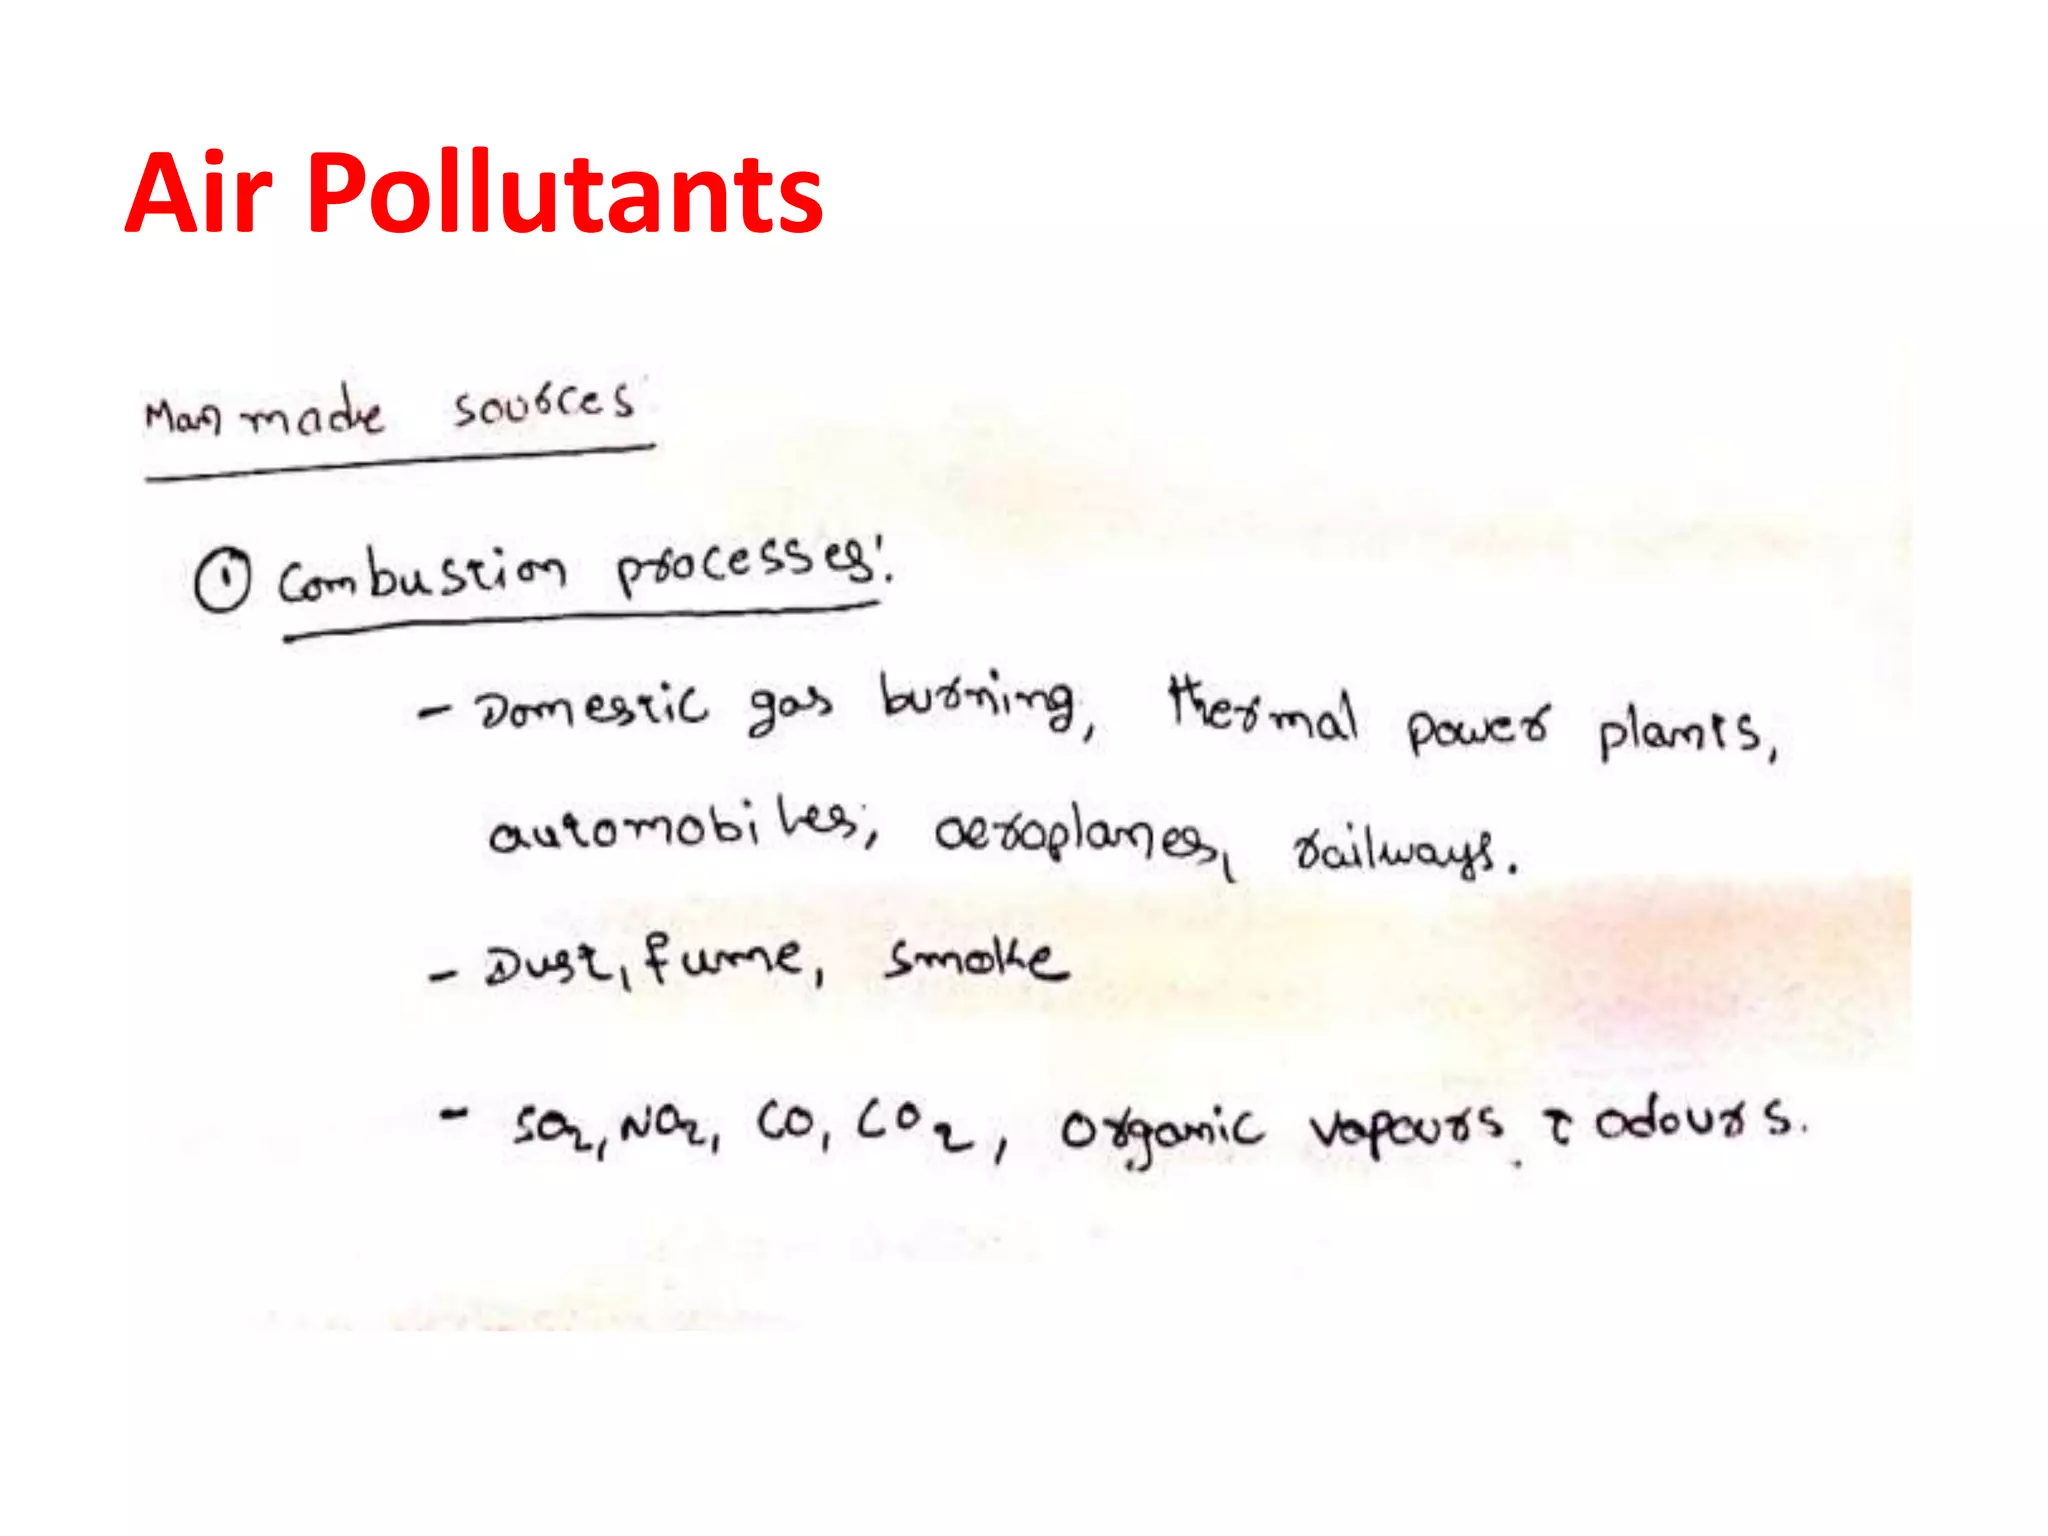 Air Pollutants
Man made sources
① Combustion processes:
- Domestic gas burning, thermal power plants,
automobiles, aeroplanes, railways.
- Dust, fume, smoke
- SO2, NO2, CO, CO2, organic vapours & odours.